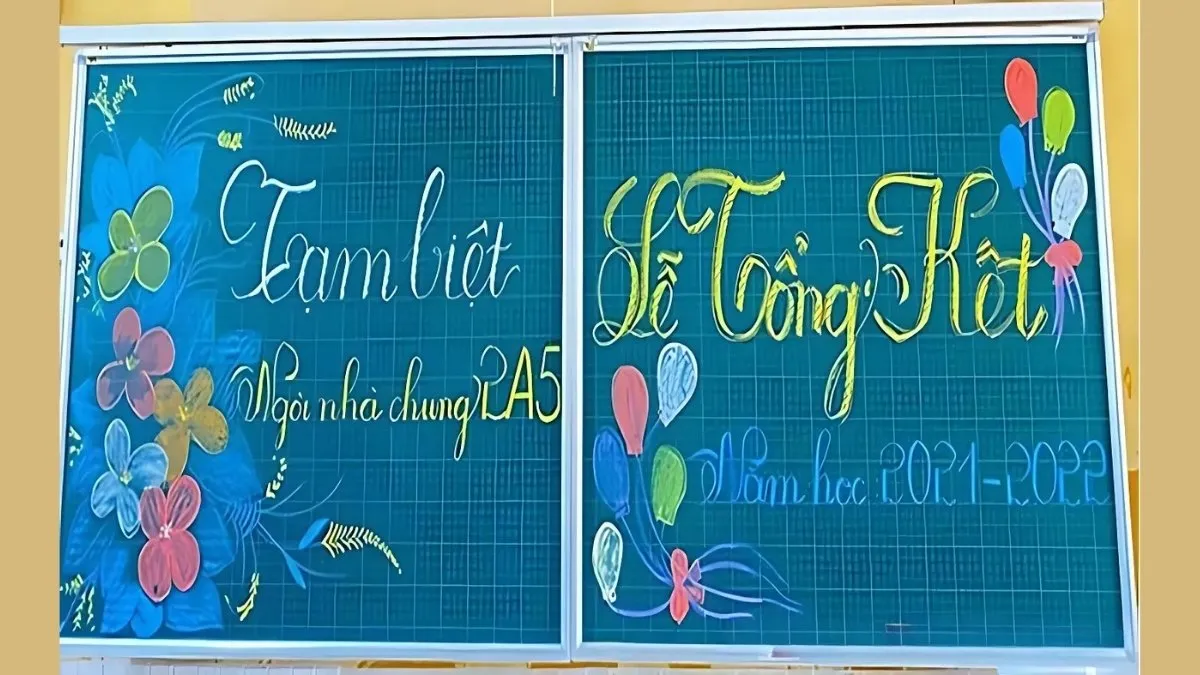 Tạm biệt
Ngôi nhà chung 2A5
Lễ Tổng Kết
Năm học 2021-2022